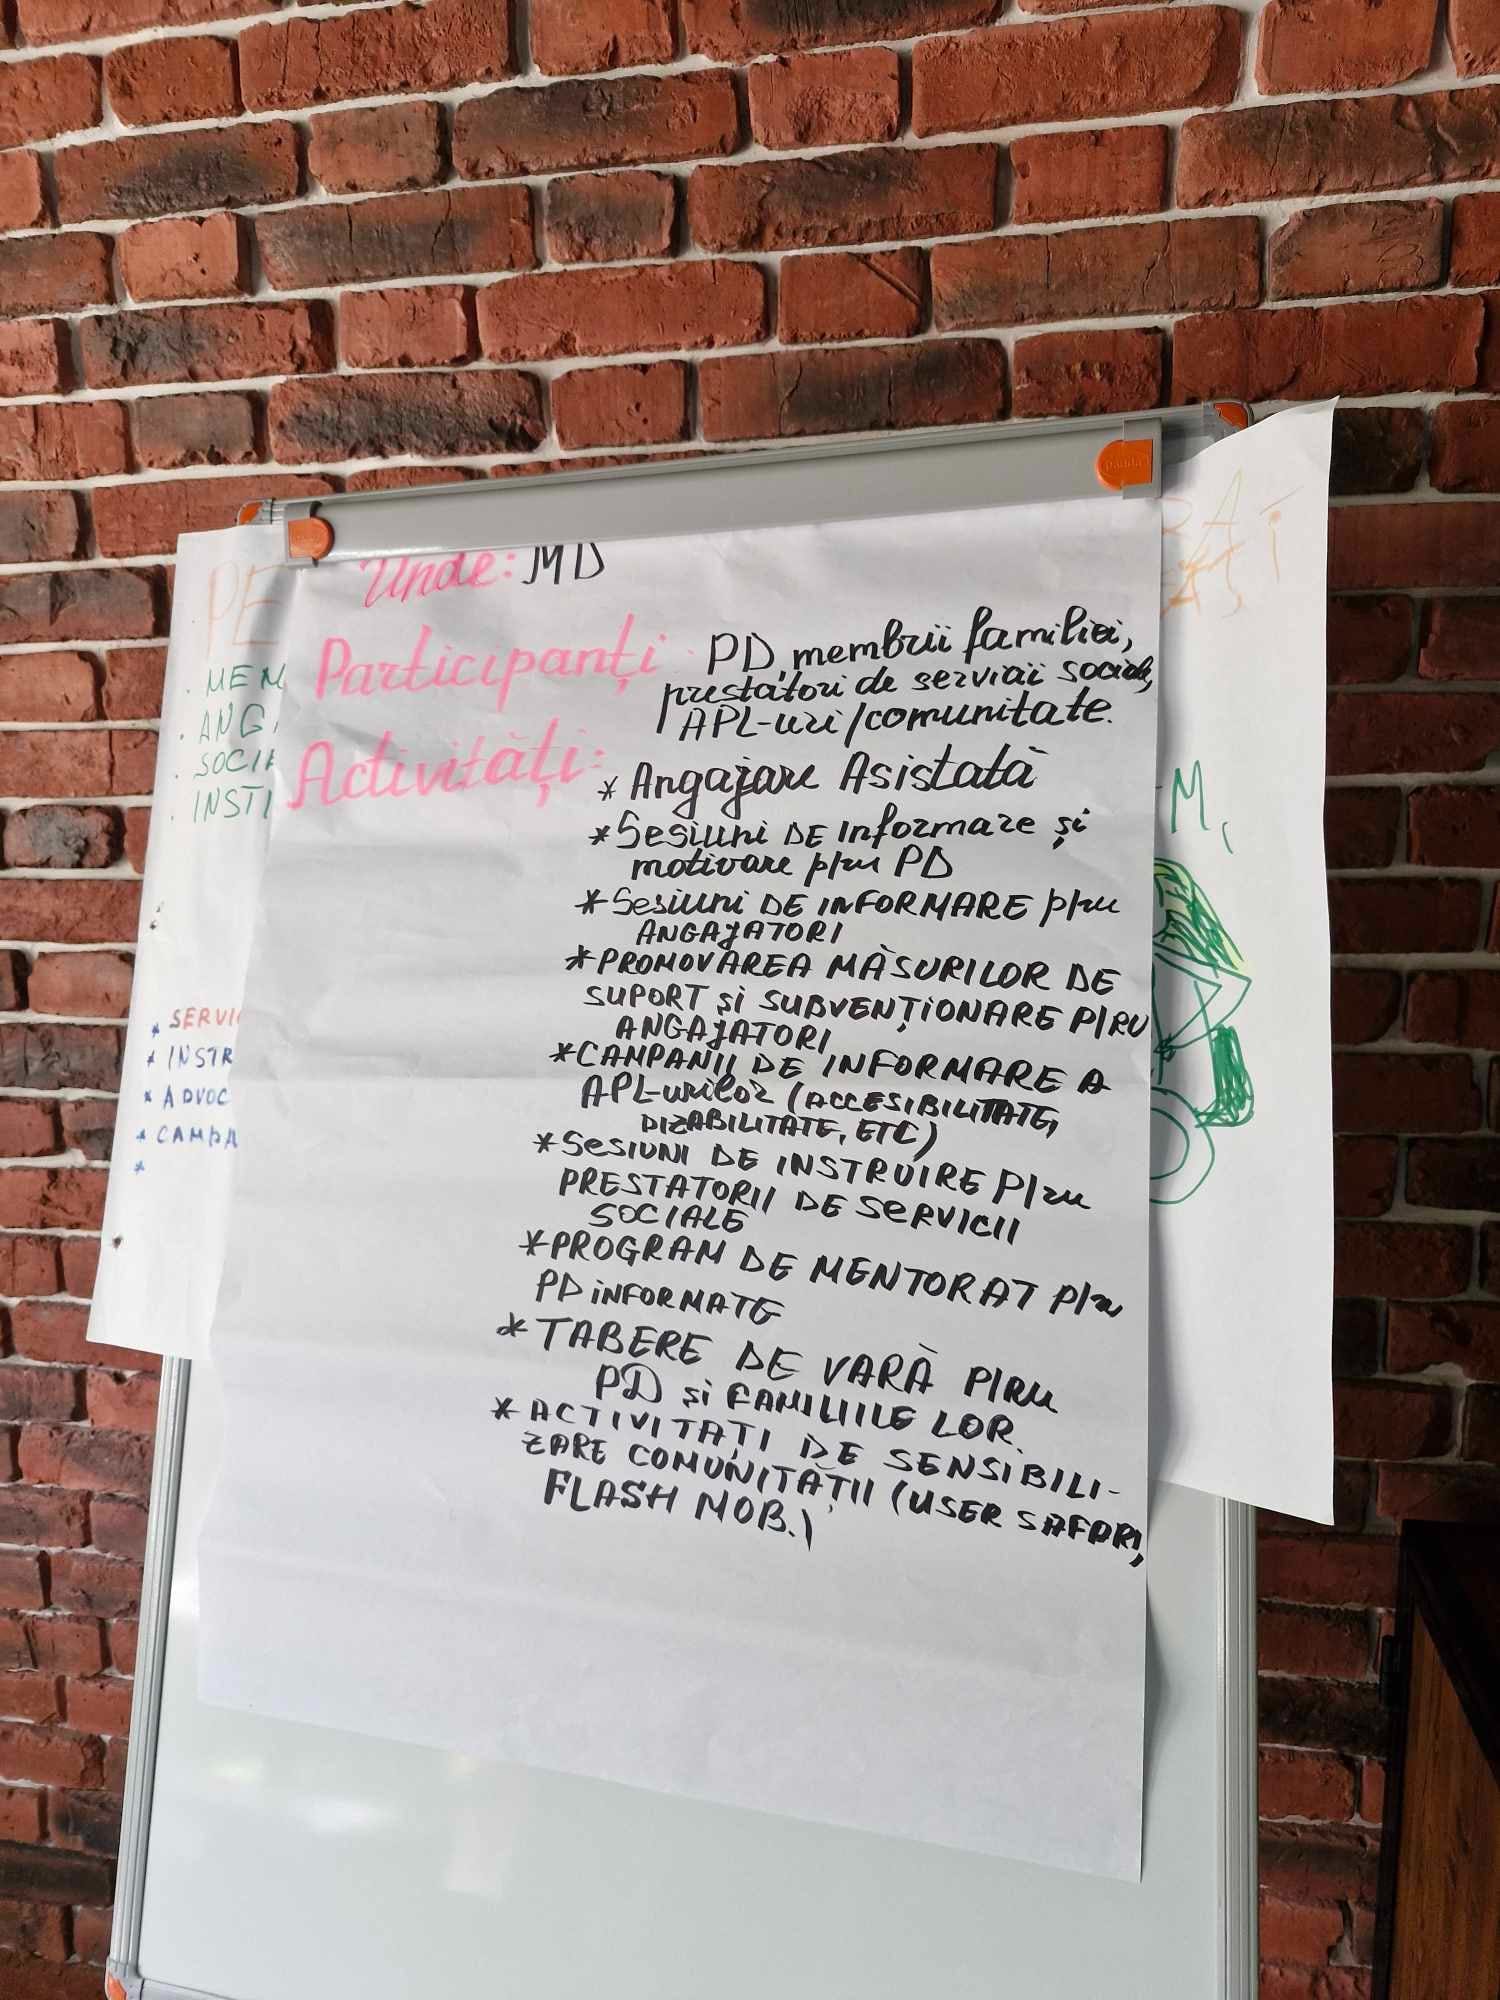 panda
Unde: MD
Participanți: PD, membrii familiei,
prestatori de servicii sociale,
APL-uri/comunitate.
Activități:
* Angajare Asistată
* Sesiuni DE informare și
motivare p/ru PD
* Sesiuni DE INFORMARE p/ru
ANGAJATORI
* PROMOVAREA MĂSURILOR DE
SUPORT ȘI SUBVENȚIONARE P/RU
ANGAJATORI
* CAMPANII DE INFORMARE A
APL-urilor (ACCESIBILITATE,
DIZABILITATE, ETC)
* Sesiuni DE INSTRUIRE p/ru
PRESTATORII DE SERVICII
SOCIALE
* PROGRAM DE MENTORAT p/ru
PD INFORMATE
* TABERE DE VARĂ P/RU
PD și FAMILIILE LOR.
* ACTIVITĂȚI DE SENSIBILI-
ZARE COMUNITĂȚII (USER SAFARI,
FLASH MOB.)
PE
. MEM
. ANGA
. SOCIA
. INSTI
* SERVIC
* INSTR
* ADVOC
* CAMPA
*
M,